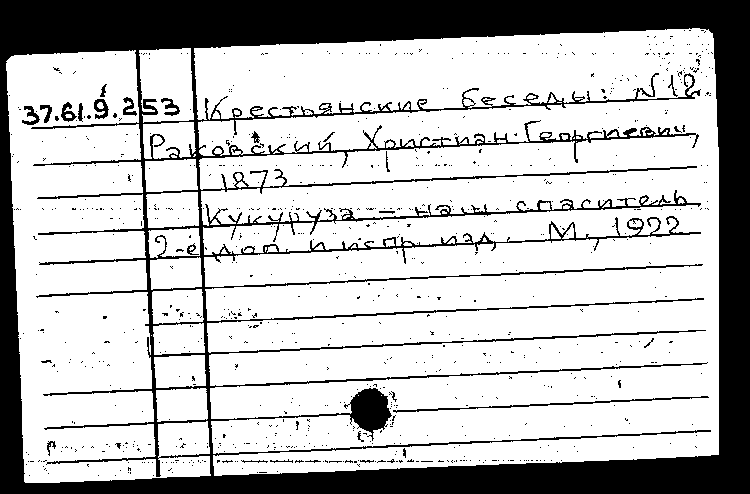 37.61.9.253 Крестьянские беседы: N 12.
Раковский, Христиан Георгиевич,
1873
Кукуруза – наш спаситель.
2-е доп. и испр. изд. М., 1922